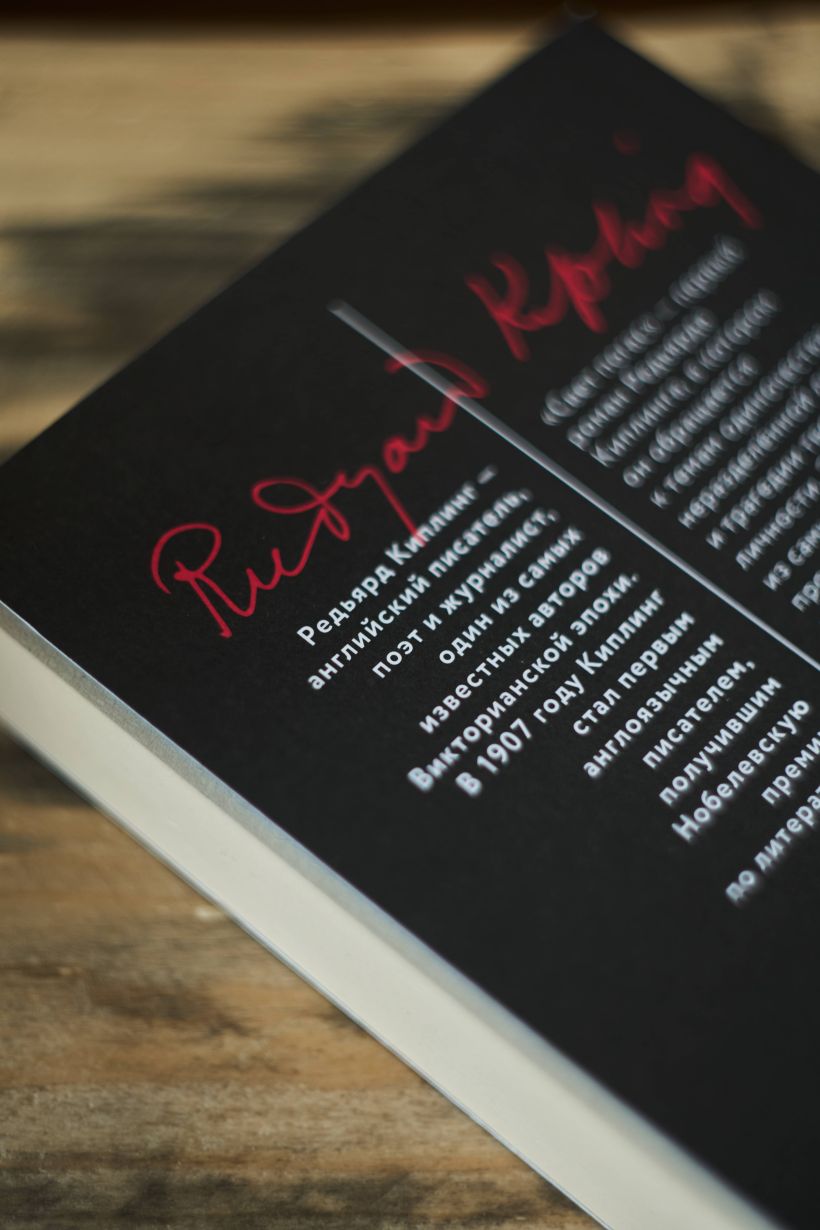 Rudyard Kipling
Редьярд Киплинг –
английский писатель,
поэт и журналист,
один из самых
известных авторов
Викторианской эпохи.
В 1907 году Киплинг
стал первым
англоязычным
писателем,
получившим
Нобелевскую
преми
по литерат
«Свет погас» –
роман Редьярда
Киплинга, в котором
он обращается
к темам
неразделённой
и трагедии
личности
из сам